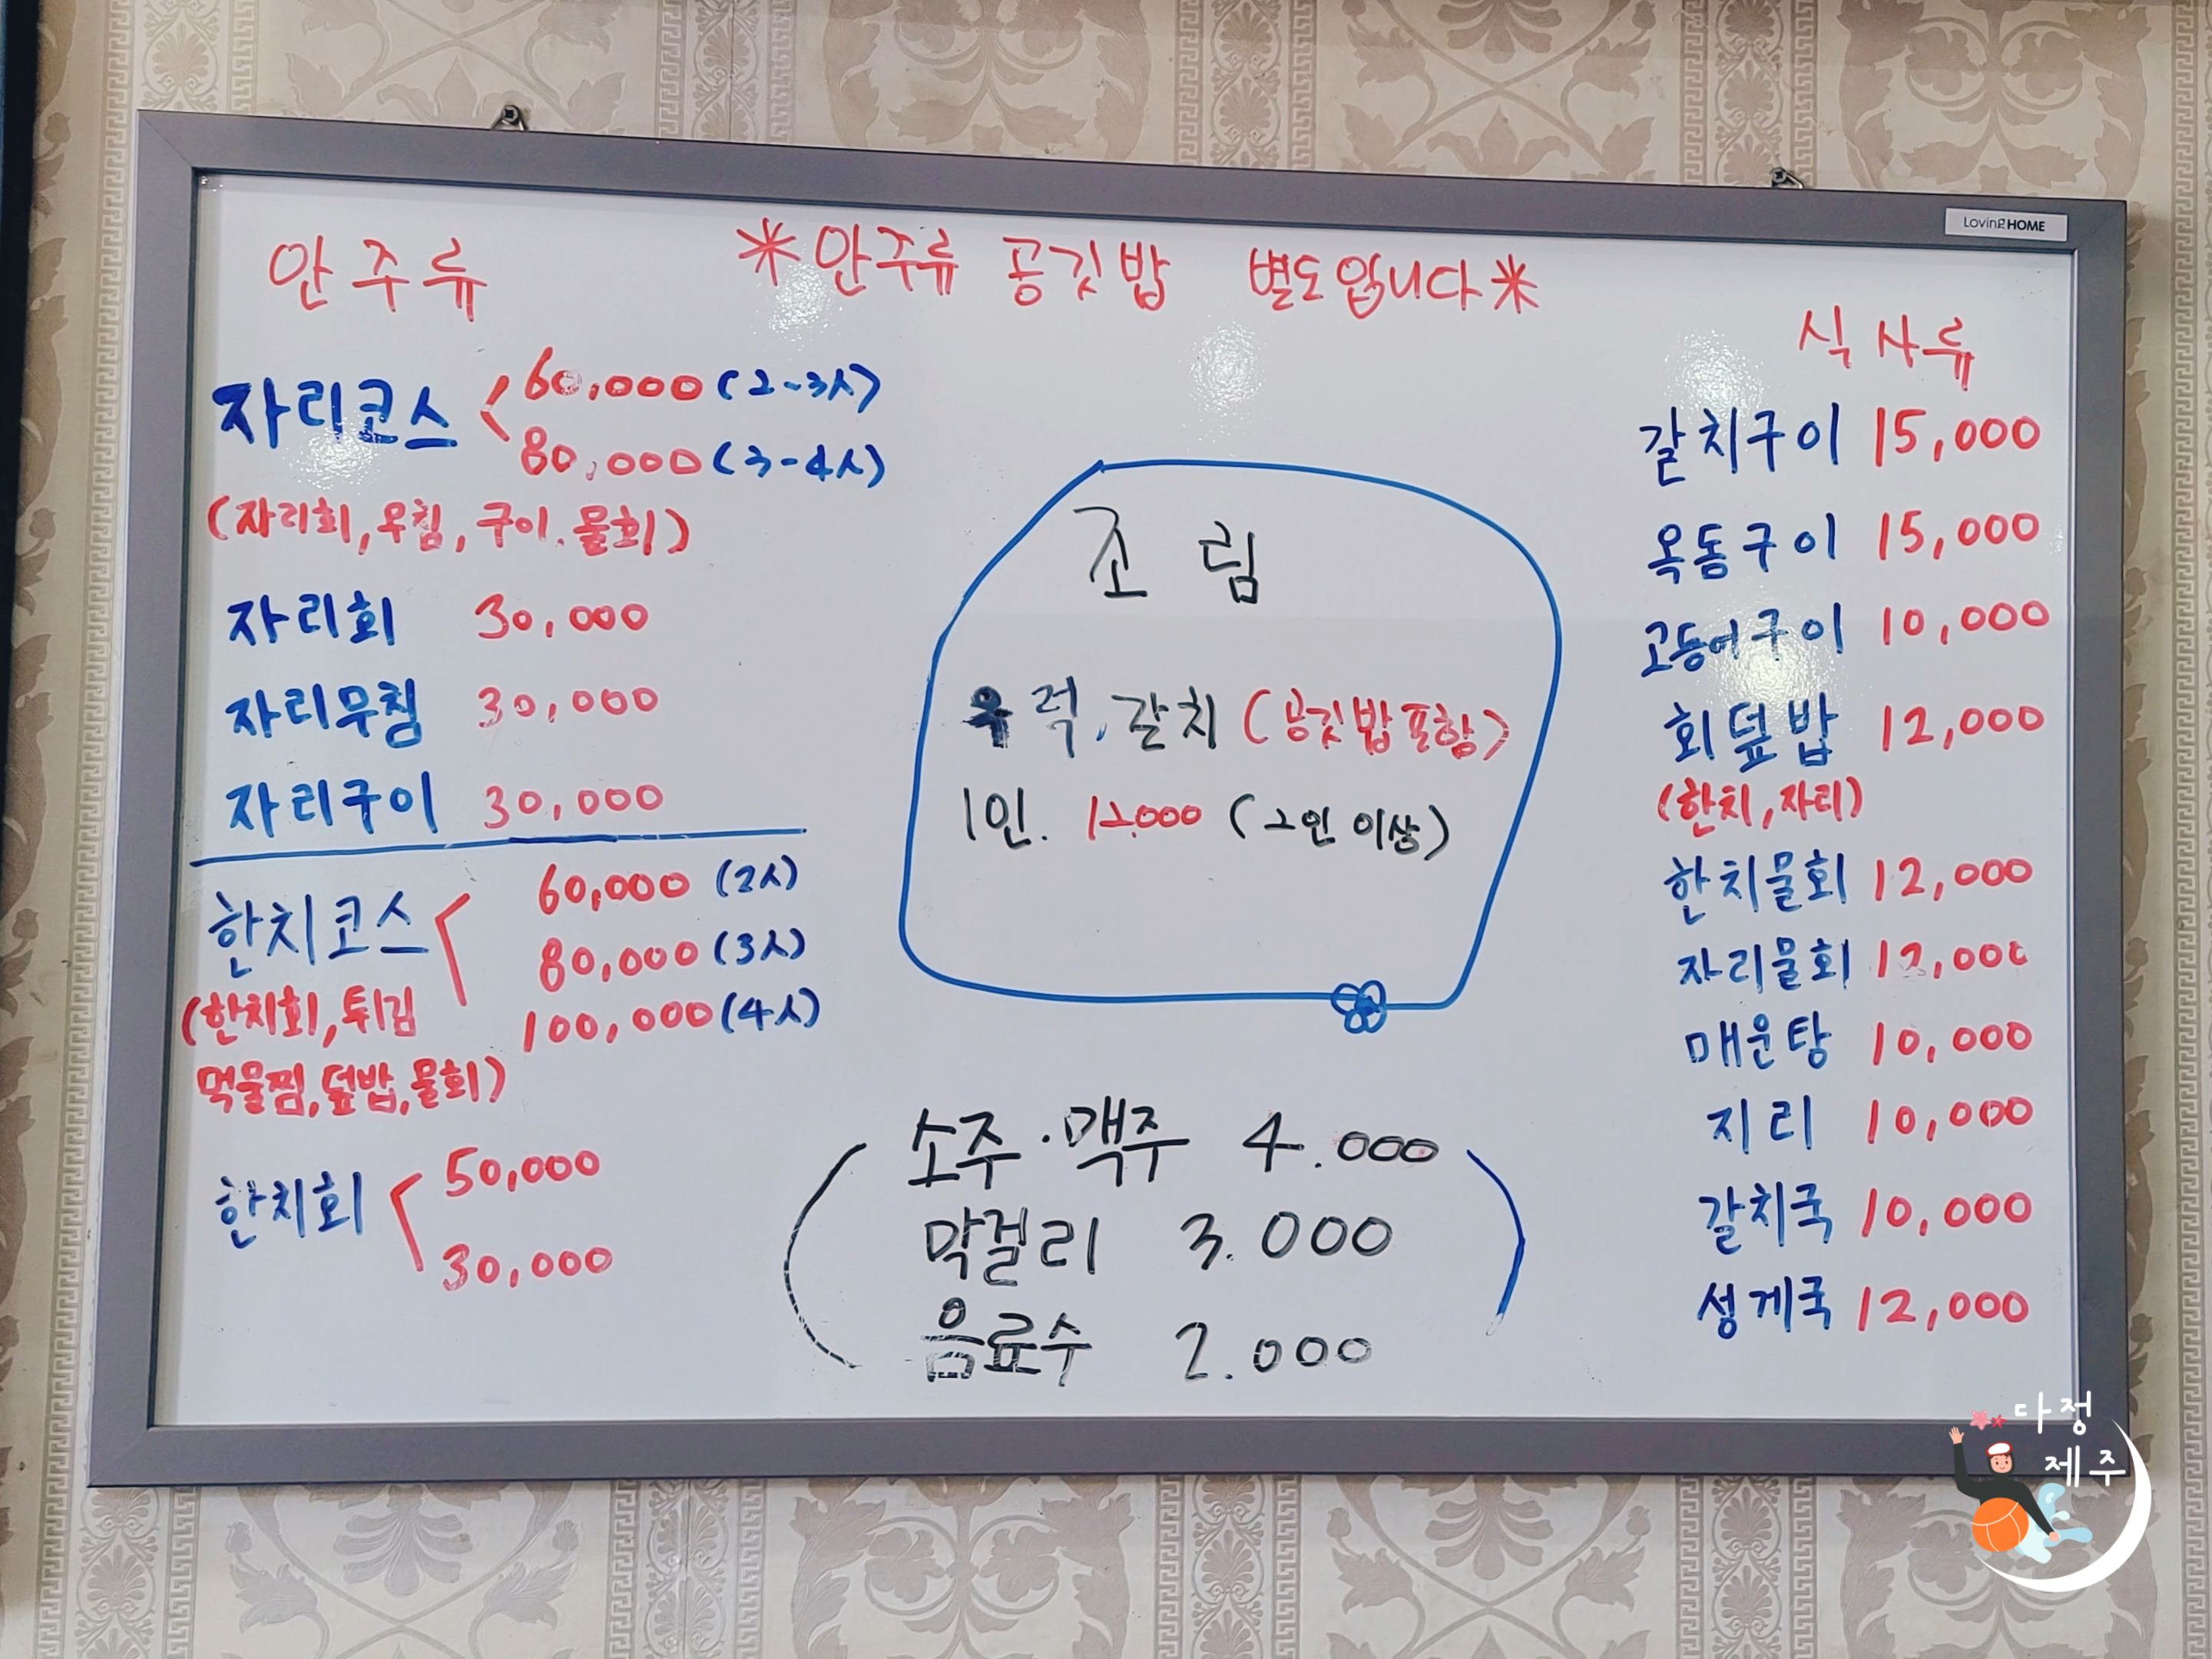 LovingHOME
안주류
*안주류 공깃밥 별도입니다*
자리코스 60,000 (2-3人)
80,000 (3-4人)
(자리회, 무침, 구이. 물회)
자리회 30,000
자리무침 30,000
자리구이 30,000
한치코스 60,000 (2人)
80,000 (3人)
100,000 (4人)
(한치회, 튀김
먹물찜, 덮밥, 물회)
한치회 50,000
30,000
조림
우럭, 갈치 (공깃밥 포함)
1인. 12.000 (2인 이상)
소주·맥주 4.000
막걸리 3.000
음료수 2.000
식사류
갈치구이 15,000
옥돔구이 15,000
고등어구이 10,000
회덮밥 12,000
(한치, 자리)
한치물회 12,000
자리물회 12,000
매운탕 10,000
지리 10,000
갈치국 10,000
성게국 12,000
다정
제주